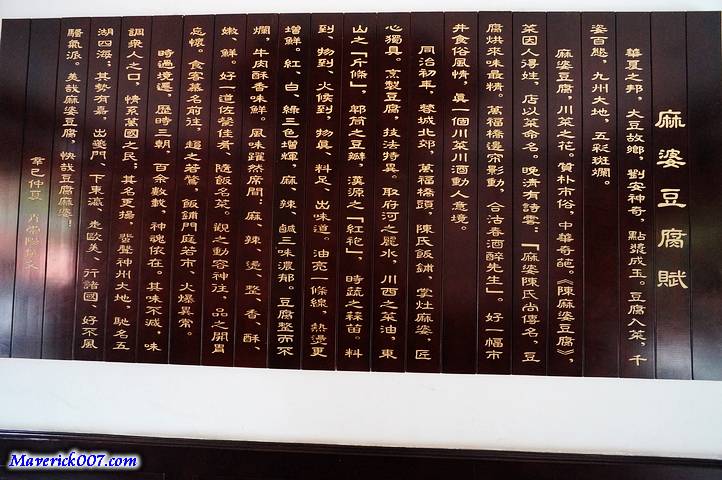 麻婆豆腐賦
華夏之邦，大豆故鄉，劉安神奇，點漿成玉。豆腐入菜，千
姿百態，九州大地，五彩斑斕。
麻婆豆腐，川菜之花。質朴市俗，中華奇葩。《陳麻婆豆腐》，
菜因人得姓，店以菜命名。晚清有詩雲：「麻婆陳氏尚傳名，豆
腐烘來味最精。萬福橋邊帘影動，合沽春酒醉先生」。好一幅市
井食俗風情，真一個川菜川酒動人意境。
同治初年，蓉城北郊，萬福橋頭，陳氏飯鋪，掌灶麻婆，匠
心獨具。烹製豆腐，技法特異。取府河之麗水，川西之菜油，東
山之「二金條」，郫筒之豆瓣，漢源之「紅袍」，時蔬之蒜苗。料
到、物到、火候到，物真、料足、出味道。油亮一條線，熱燙更
增鮮。紅、白、綠三色增輝，麻、辣、鹹三味濃郁。豆腐整而不
爛，牛肉酥香味鮮。風味躍然席間：麻、辣、燙、整、香、酥、
嫩、鮮。好一道佐餐佳肴、隨飯名菜。觀之動容神往，品之開胃
忘懷。食客慕名前往，趨之若鶩，飯鋪門庭若市，火爆異常。
時過境遷，歷時三朝，百余數載，神魂依在。其味不減，味
調衆人之口，情系萬國之民；其名更揚，蜚聲神州大地，馳名五
湖四海；其勢有嘉，出夔門、下東瀛、走歐美、行諸國，好不風
騷氣派。美哉麻婆豆腐，快哉豆腐麻婆！
辛巳仲夏
Maverick007.com